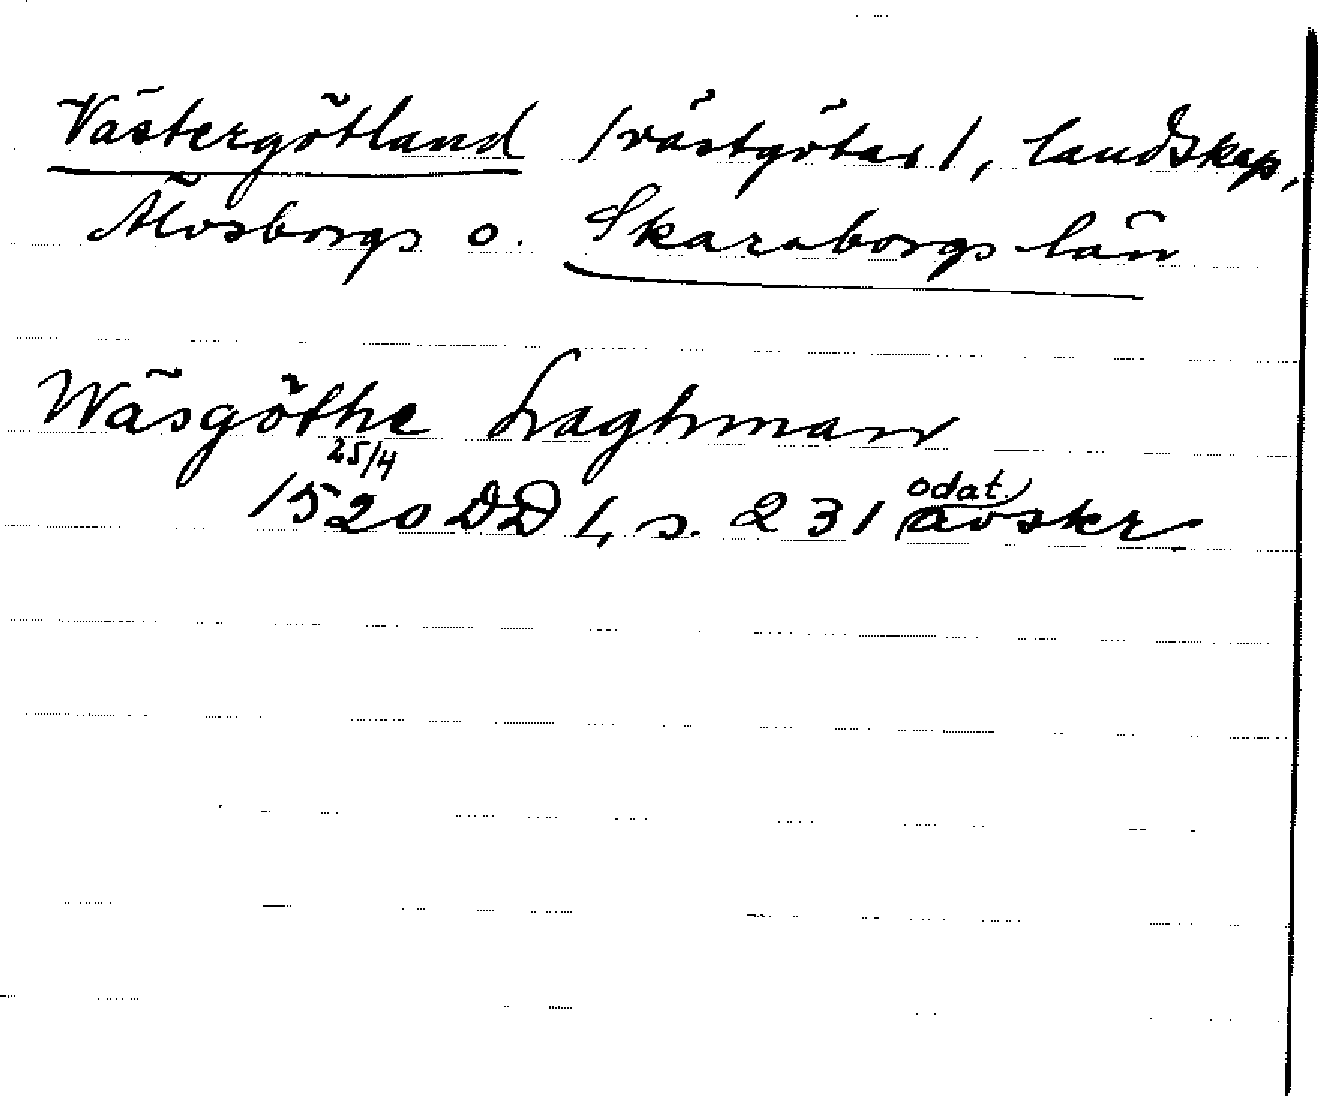 Västergötland /västgötar/, landskap,
Älvsborgs o. Skaraborgs län
Wäsgöthe Laghman
25/4
1520 DD 1, s. 231 odat. avskr